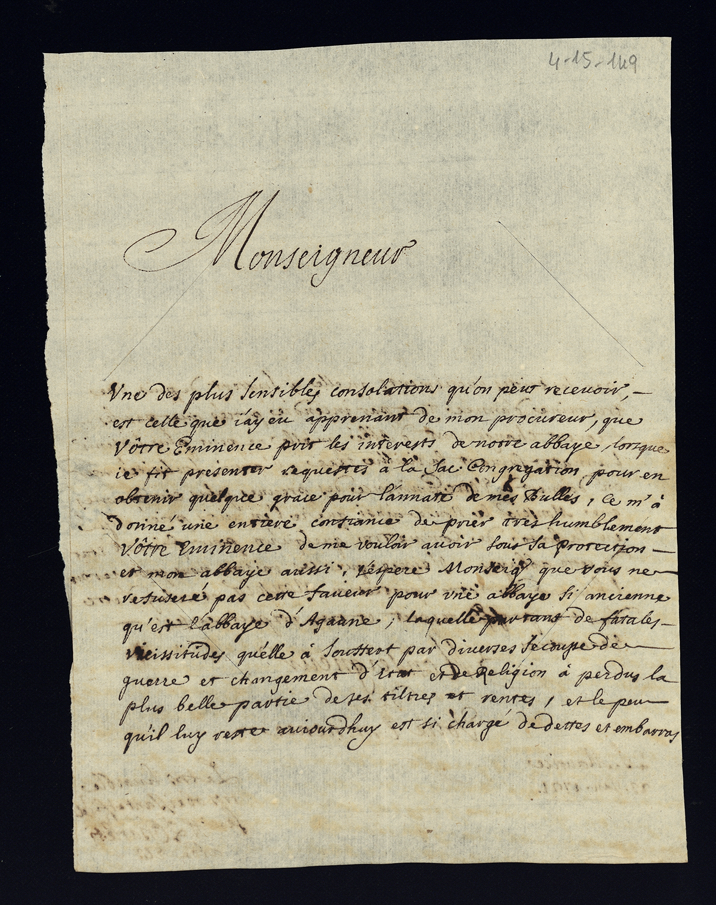 4-15-149
Monseigneur
Vne des plus sensibles consolations qu'on peut recevoir,
est celle que i'ay eu apprenant de mon procureur, que
Vôtre Eminence prit les interests de notre abbaye lorsque
ie fit presenter requestes à la Sac. Congregation pour en
obtenir quelque grace pour l'annate de mes Bulles, Ce m'à
donné une entiere confiance de prier tres humblement
Vôtre Eminence de me vouloir avoir sous sa Protection
et mon abbaye aussi, i'espere Monseigr que vous ne
refuserè pas cette faveur pour vne abbaye si ancienne
qu'est l'abbaye d'Agaune, laquelle par tant de fatales
vicissitudes qu'elle à souffert par diverses secousse de
guerre et changement d'Etat et de Religion à perdus la
plus belle partie de ses tiltres et rentes, et le peu
qu'il luy reste auiourdhuy est si chargé de dettes et embarras